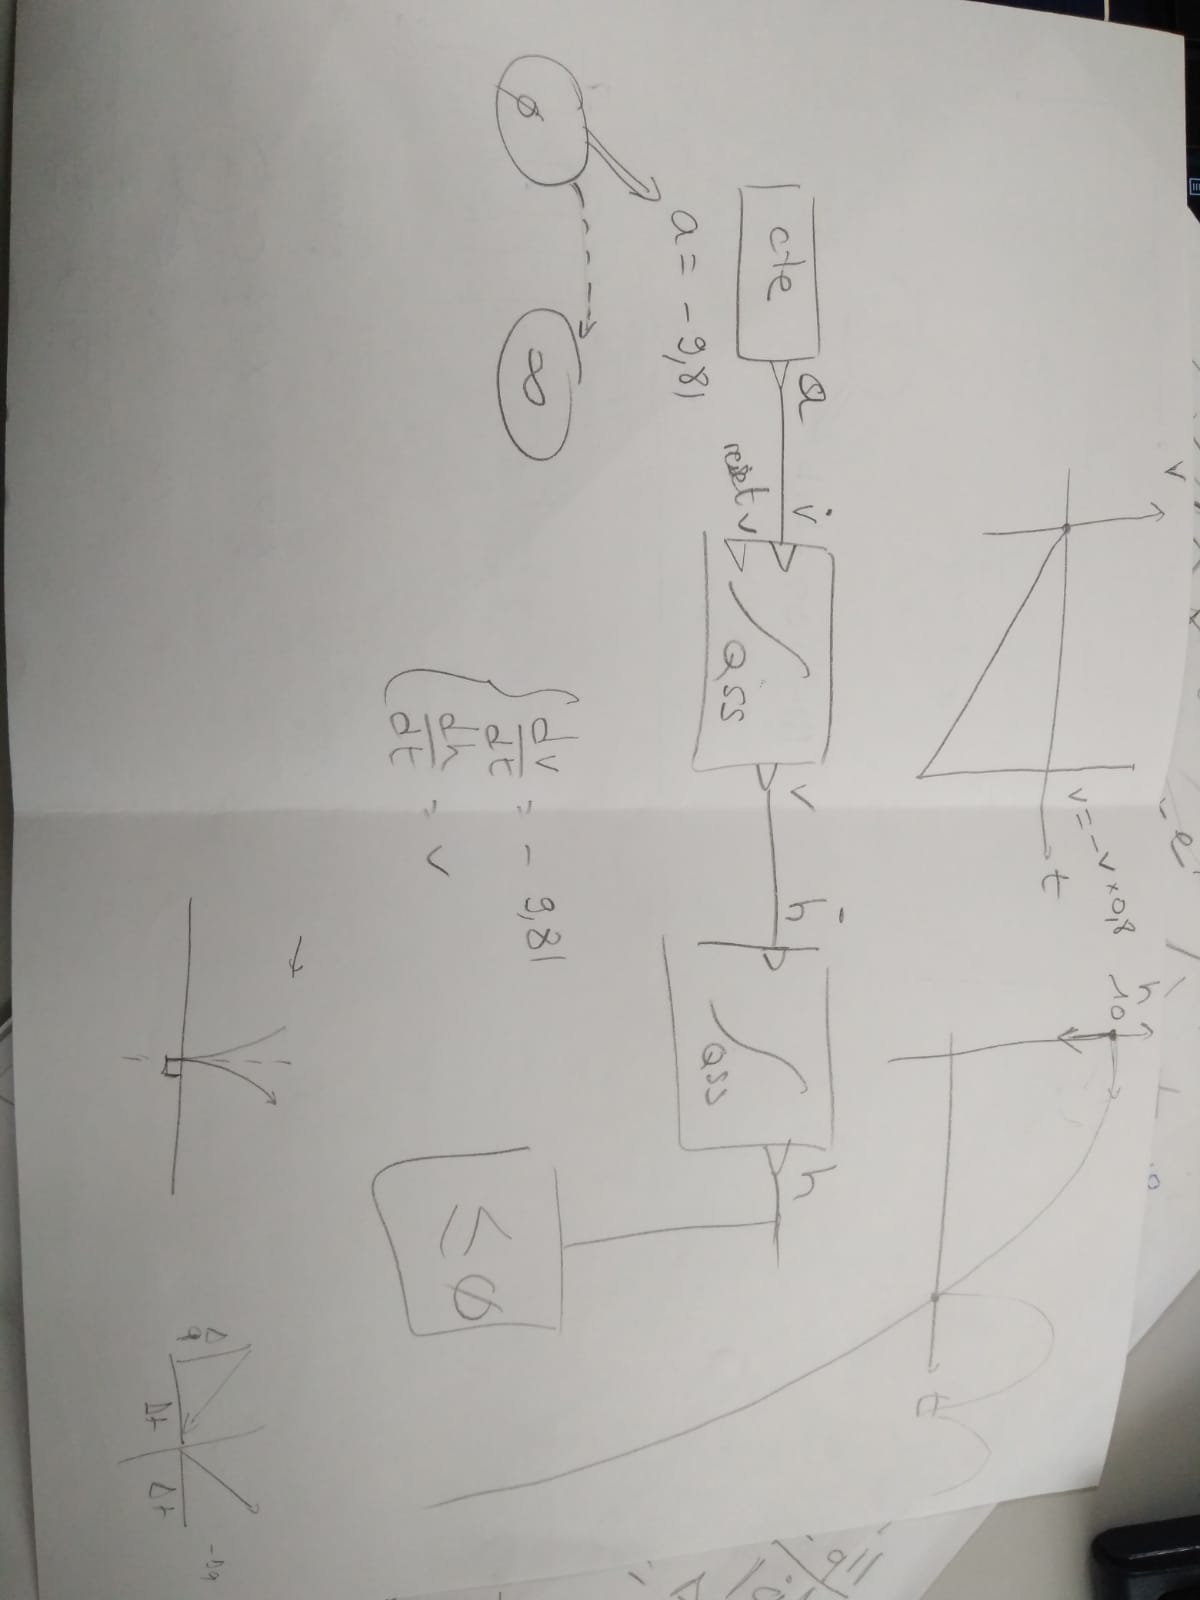 v
h
10
v = -v × 0,8
t
t
cte
a
v̇
reset v
QSS
v
ḣ
QSS
h
a = - 9,81
ϕ
∞
dv/dt = - 9,81
dh/dt = v
≤ ϕ
Δq
Δt
Δt
-Δq